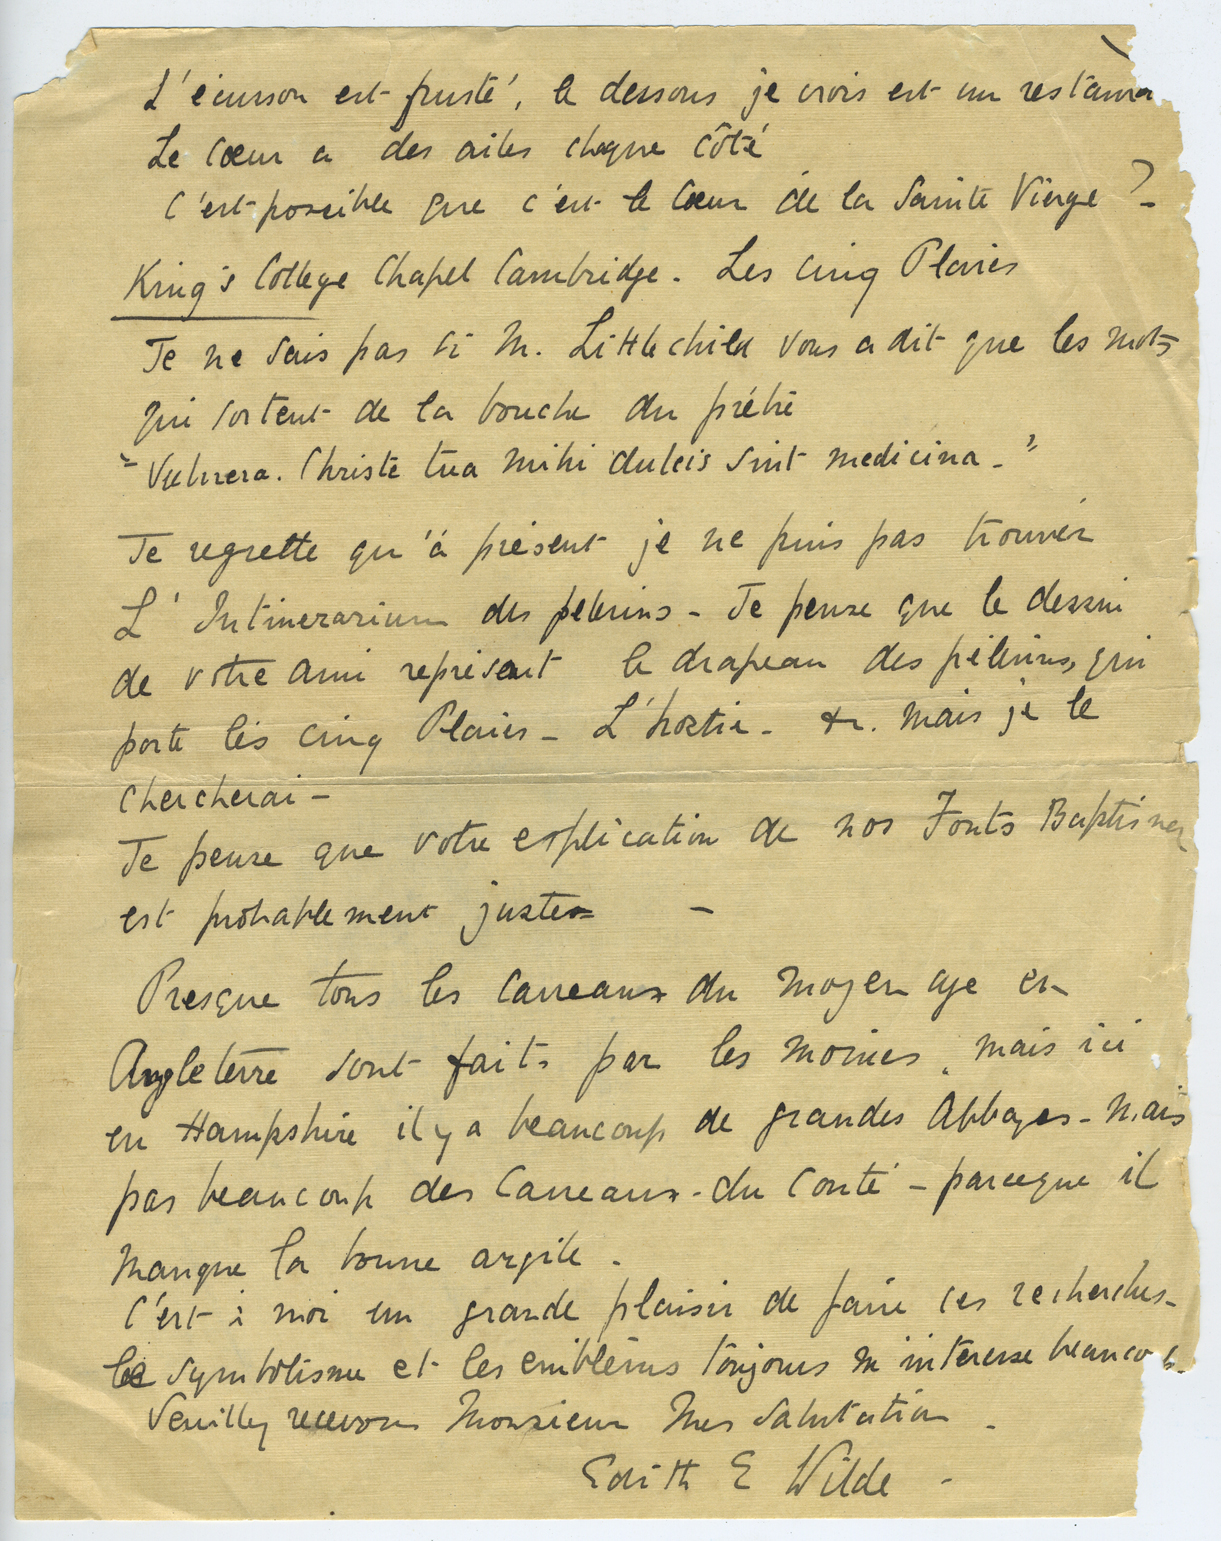 L'écusson est frusté, le dessous je crois est un restaura
Le Cœur a des ailes chaque côté
C'est possible que c'est le Cœur de la Sainte Vierge ? -
King's College Chapel Cambridge. Les cinq Plaies
Je ne sais pas si M. Littlechild vous a dit que les mots
qui sortent de la bouche du prêtre
"Vulnera. Christe tua mihi dulcis sint medicina - "
Je regrette qu'à présent je ne puis pas trouver
L'Intinerarium des pèlerins - Je pense que le dessin
de votre ami représent le drapeau des pèlerins, qui
porte les cinq Plaies - L'hostie - &c. mais je le
chercherai -
Je pense que votre explication de nos Fonts Baptismea
est probablement juste -
Presque tous les Carreaux du moyen age en
Angleterre sont faits par les moines, mais ici
en Hampshire il y a beaucoup de grandes Abbayes - Mais
pas beaucoup des Carreaux - du Conté - parceque il
manque la bonne argile .
C'est à moi un grande plaisir de faire ces recherches -
le symbolisme et les emblèmes toujours m'intéresse beaucoup
Veuilley recevoir Monsieur Mes Salutation -
Edith E Wilde -